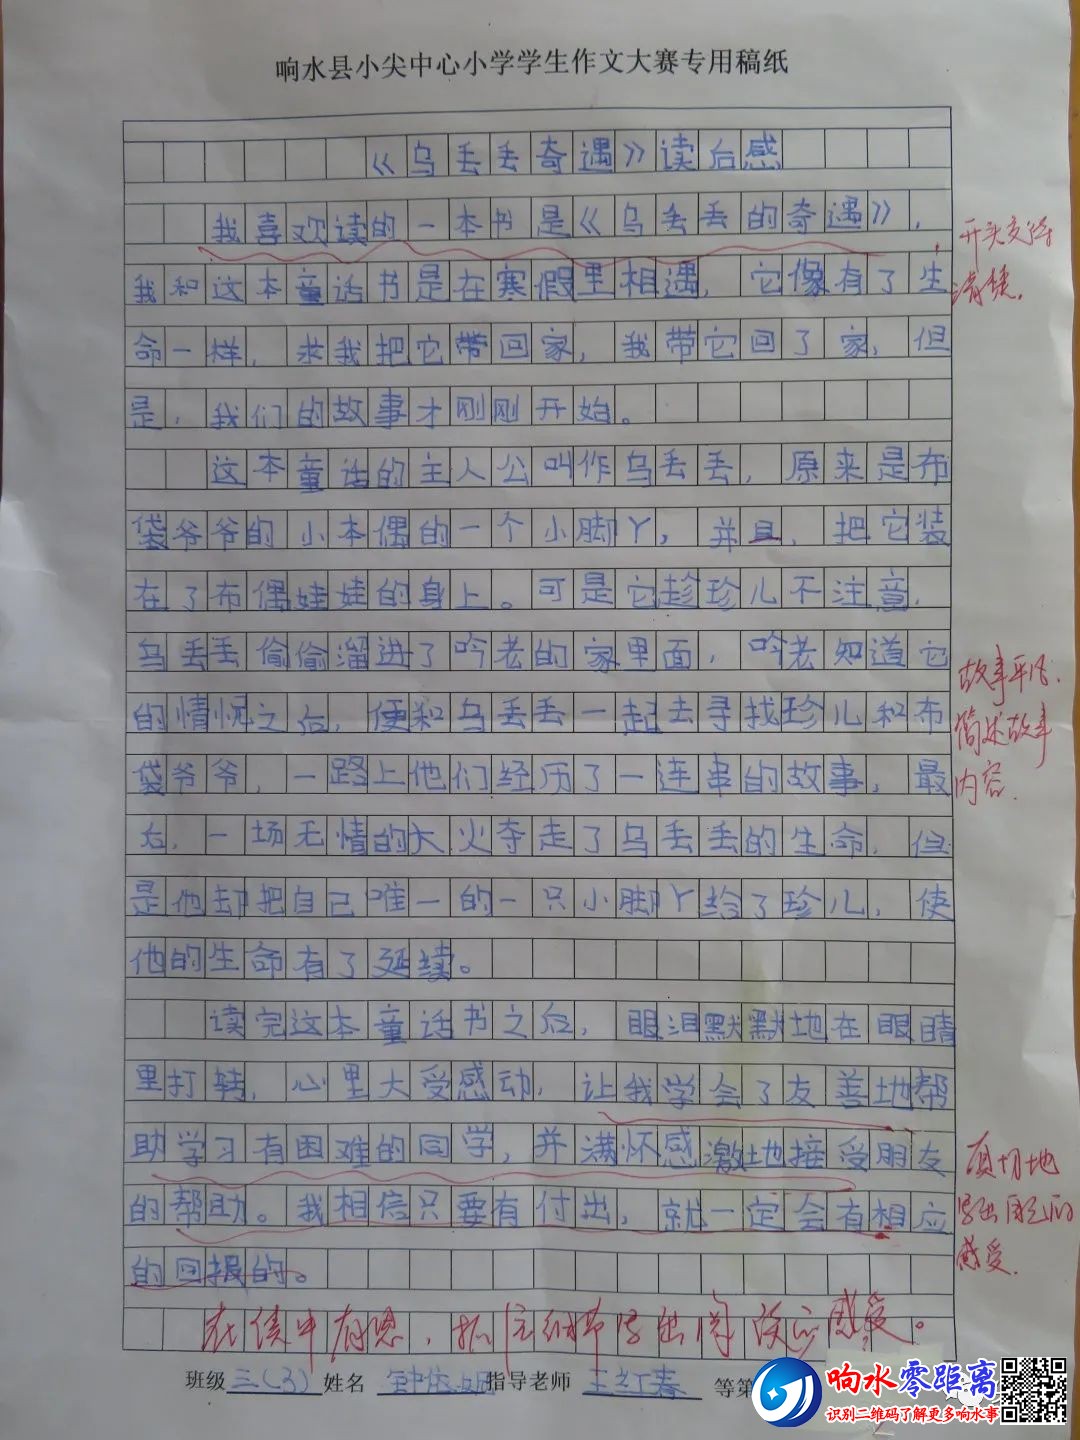 响水县小尖中心小学学生作文大赛专用稿纸
《乌丢丢奇遇》读后感
我喜欢读的一本书是《乌丢丢的奇遇》，
开头交待
清楚.
我和这本童话书是在寒假里相遇，它像有了生
命一样，求我把它带回家，我带它回了家，但
是，我们的故事才刚刚开始。
这本童话的主人公叫作乌丢丢，原来是布
袋爷爷的小本偶的一个小脚丫，并且，把它装
在了布偶娃娃的身上。可是它趁珍儿不注意，
乌丢丢偷偷溜进了吟老的家里面，吟老知道它
的情况之后，便和乌丢丢一起去寻找珍儿和布
故事
简述故事
内容.
袋爷爷，一路上他们经历了一连串的故事，最
后，一场无情的大火夺走了乌丢丢的生命，但
是他却把自己唯一的一只小脚丫给了珍儿，使
他的生命有了延续。
读完这本童话书之后，眼泪默默地在眼睛
里打转，心里大受感动，让我学会了友善地帮
助学习有困难的同学，并满怀感激地接受朋友
的帮助。我相信只要有付出，就一定会有相应
的回报的。
真切地
写出自己的
感受.
在读中有思，抓住细节写出阅读后感受。
班级 三(3) 姓名 钟依 指导老师 王红春 等第
响水零距离
识别二维码了解更多响水事